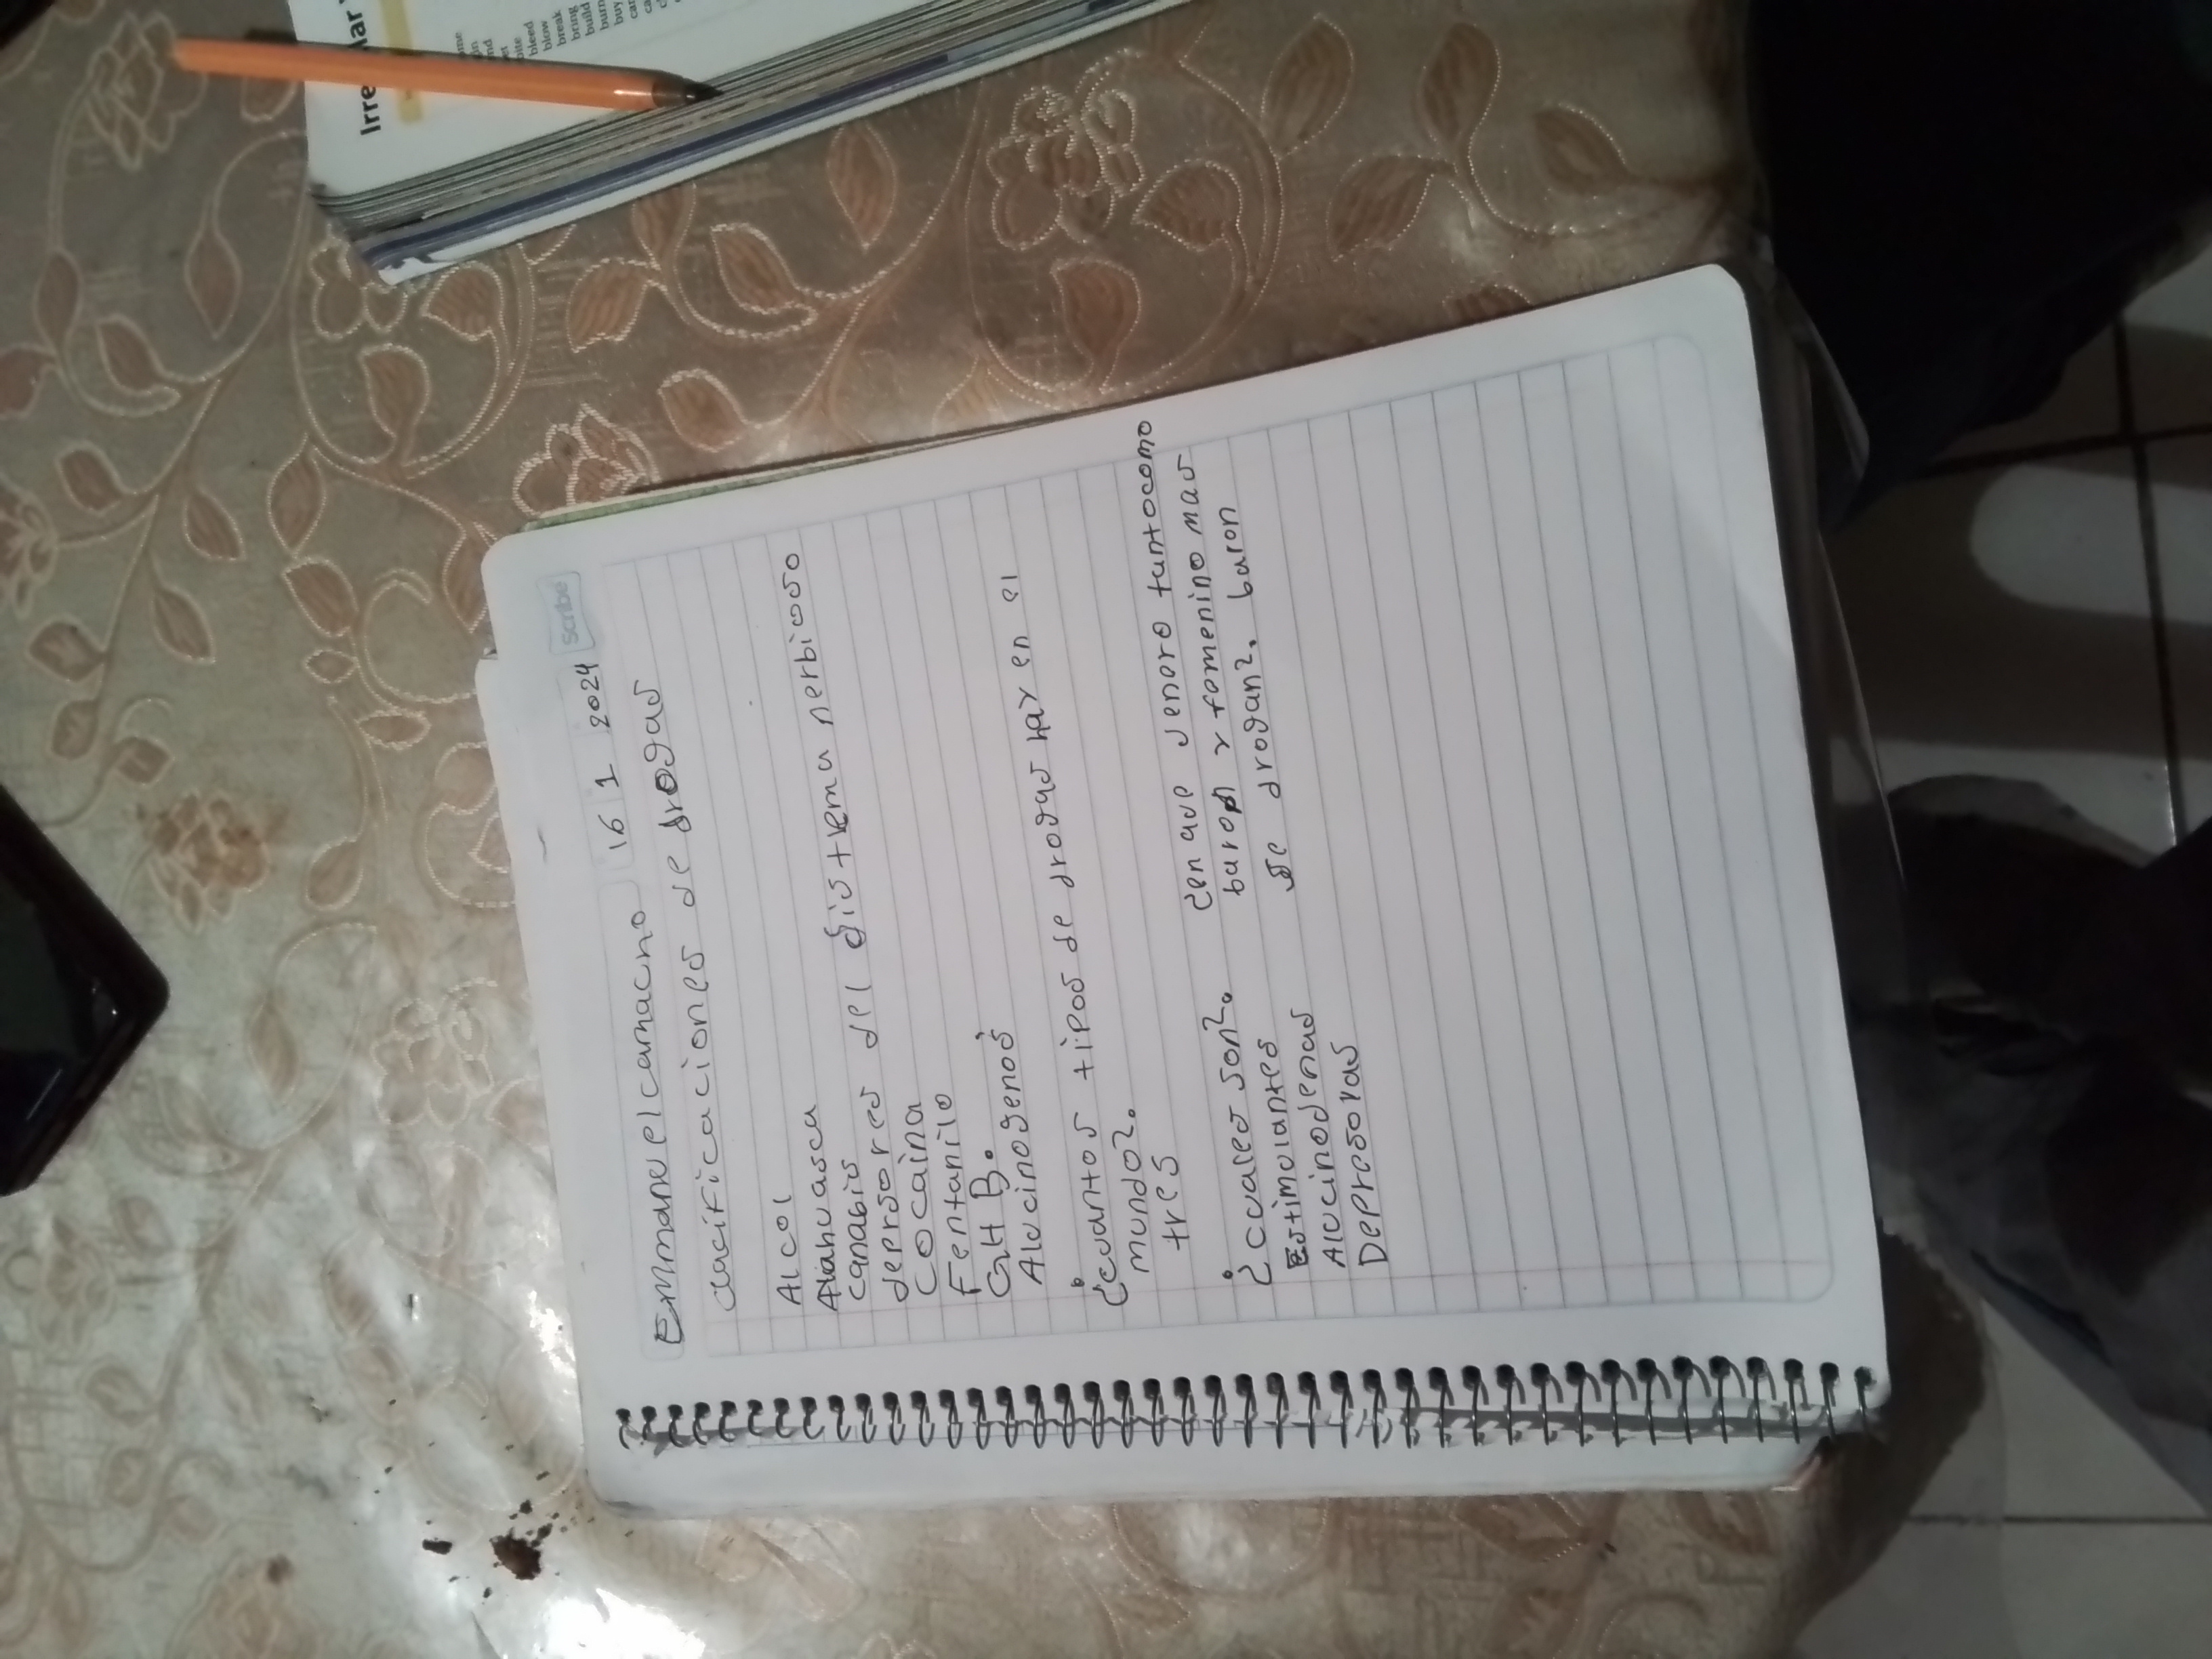 Emmanuel camacho 16 1 2024
Scribe
clacificaciones de drogas
Alcol
Alahuasca
canabis
depresores del sistema nerbioso
cocaina
Fentanilo
G H B.
Alucinogenos
¿cuantos tipos de drogas hay en el
mundo?.
tres
¿cuales son?.
Estimulantes
Alucinodenas
Depresoras
¿en que jenero tantocomo
baron y femenino mas
se drogan?. baron
Irre lar
bleed
blow
break
bring
build
burn
buy